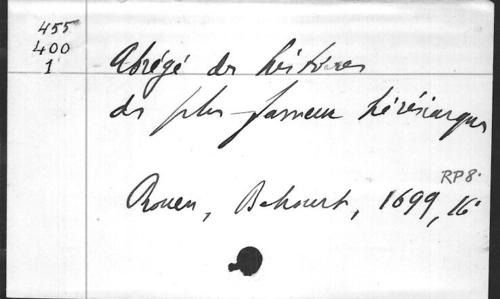 455
400
1
Abrégé des histoires
des plus fameux hérésiarques
RP8.
Rouen, Behourt, 1699, 16°